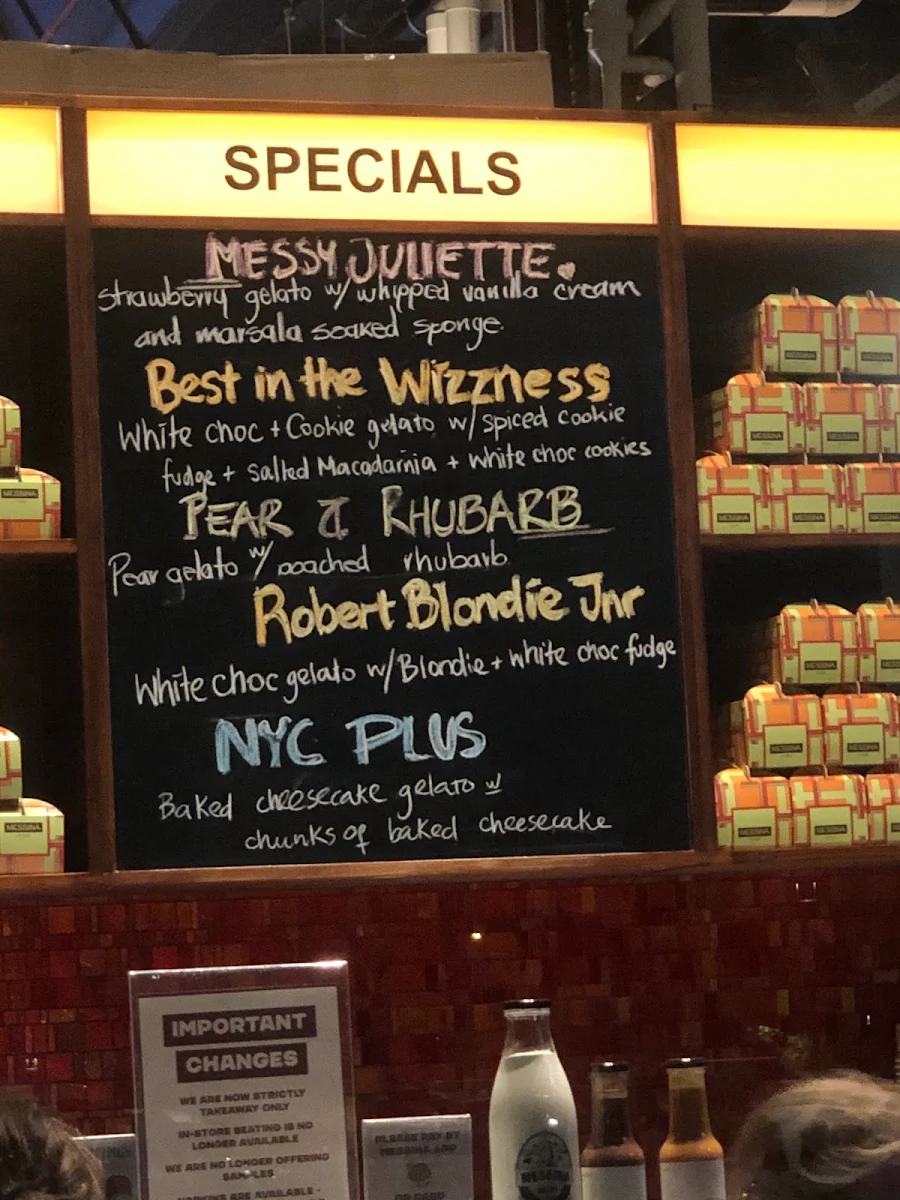 SPECIALS
MESSY JULIETTE
strawberry gelato w/ whipped vanilla cream
and marsala soaked sponge.
Best in the Wizzness
White choc + Cookie gelato w/ spiced cookie
fudge + Salted Macadamia + white choc cookies
PEAR & RHUBARB
Pear gelato w/ poached rhubarb
Robert Blondie Jnr
White choc gelato w/ Blondie + white choc fudge
NYC PLUS
Baked cheesecake gelato w
chunks of baked cheesecake
MESSINA
IMPORTANT
CHANGES
WE ARE NOW STRICTLY
TAKEAWAY ONLY
IN-STORE SEATING IS NO
LONGER AVAILABLE
WE ARE NO LONGER OFFERING
SAMPLES
PLEASE PAY BY
MESSINA APP
OR CARD
MESSINA